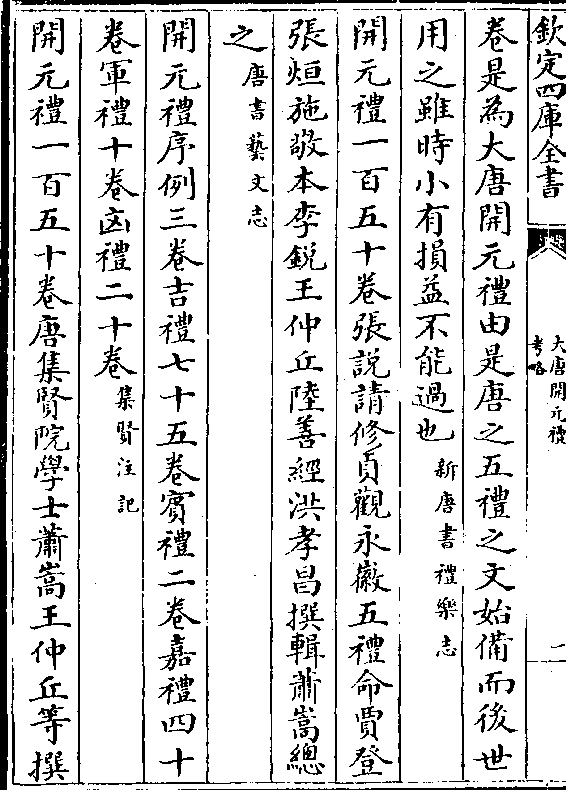 欽定四庫全書
大唐開元禮
考略
二
卷是為大唐開元禮由是唐之五禮之文始備而後世
用之雖時小有損益不能過也新唐書禮樂志
開元禮一百五十卷張說請修貞觀永徽五禮命賈登
張烜施敬本李銳王仲丘陸善經洪孝昌撰輯蕭嵩總
之唐書藝文志
開元禮序例三卷吉禮七十五卷賓禮二卷嘉禮四十
卷軍禮十卷凶禮二十卷集賢注記
開元禮一百五十卷唐集賢院學士蕭嵩王仲丘等撰